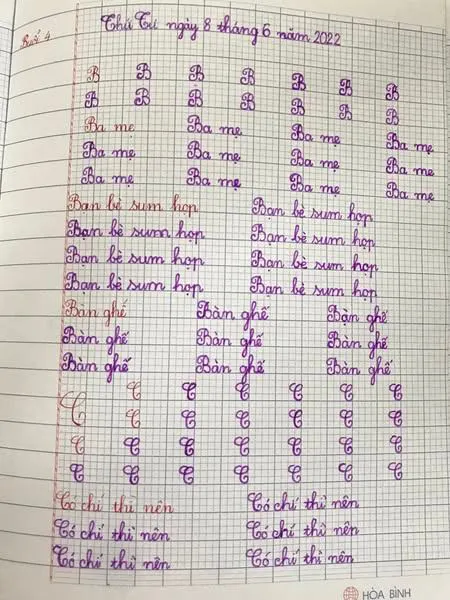 Thứ Tư ngày 8 tháng 6 năm 2022
Buổi 4
B B B B B B B
B B B B B B B
Ba mẹ Ba mẹ Ba mẹ Ba mẹ
Ba mẹ Ba mẹ Ba mẹ Ba mẹ
Ba mẹ Ba mẹ Ba mẹ Ba mẹ
Bạn bè sum họp Bạn bè sum họp
Bạn bè sum họp Bạn bè sum họp
Bạn bè sum họp Bạn bè sum họp
Bạn bè sum họp Bạn bè sum họp
Bàn ghế Bàn ghế Bàn ghế
Bàn ghế Bàn ghế Bàn ghế
Bàn ghế Bàn ghế Bàn ghế
C C C C C C C
C C C C C C
C C C C C C C
C C C C C C C
Có chí thì nên Có chí thì nên
Có chí thì nên Có chí thì nên
Có chí thì nên Có chí thì nên
HÒA BÌNH